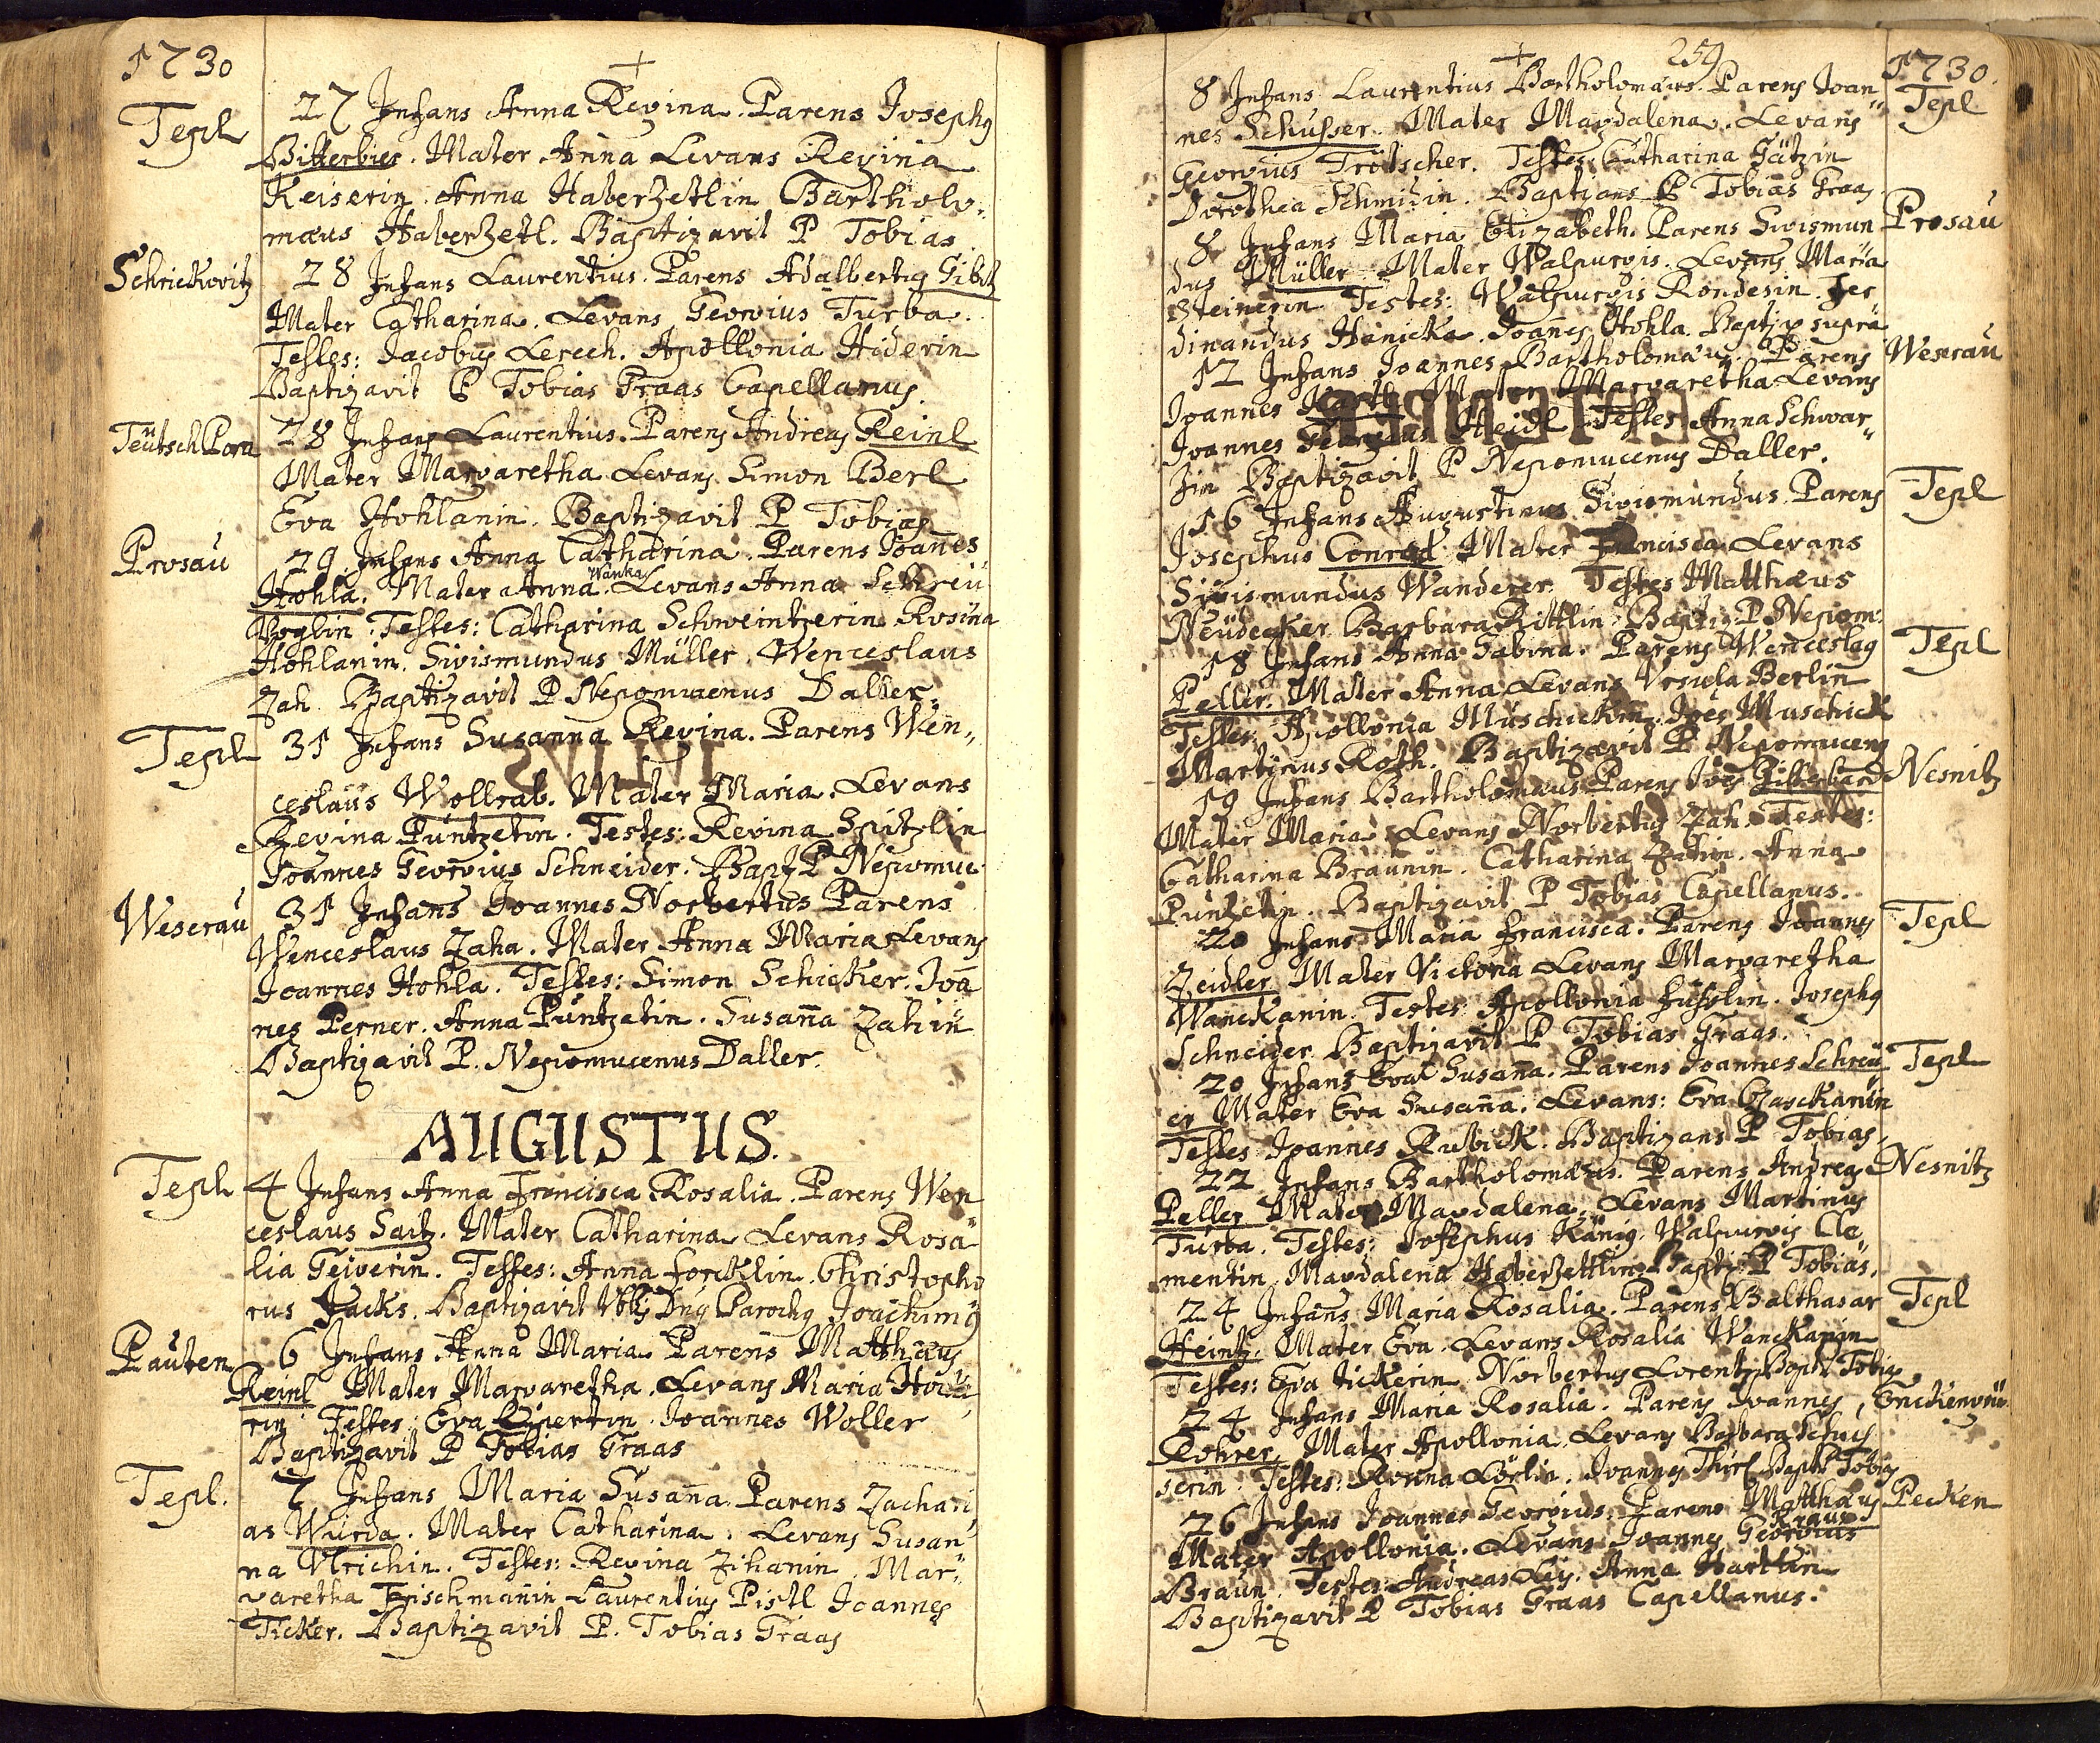 1730
+
Tepl
27 Infans Anna Regina. Parens Josephg
Bitterbier. Mater Anna Levans Regina
Keiserin. Anna Haberzetlin Bartholo,
mæus Haberzetl. Baptizavit P Tobias
Schrickovitz
28 Infans Laurentius. Parens Adalbertg Gibitz
Mater Catharina. Levans Georgius Turba.
Testes: Jacobus Lerech. Apollonia Hiderin
Baptizavit P Tobias Graas Capellanus.
Teütsch Pora
28 Infans Laurentius. Parens Andreas Reinl
Mater Margaretha Levans Simon Berl
Eva Hohlanin. Baptizavit P Tobias
Prosau
29 Infans Anna Catharina. Parens Joanes
Hohla. Mater Anna Wanka Levans Anna Schreü
Voglin. Testes: Catharina Schweintzerin Rosina
Hohlanin. Sigismundus Müller. Wenceslaus
Zah. Baptizavit P Nepomucenus Daller
Tepl
31 Infans Susanna Regina. Parens Wen,,
ceslaus Wollrab. Mater Maria. Levans
Regina Puntzetin. Testes: Regina Spitzlin
Joannes Georgius Schneider. Bapz P Nepomuc
Weserau
31 Infans Joannes Norbertus Parens
Wenceslaus Zaha. Mater Anna Maria Levans
Joannes Hohla. Testes: Simon Schicker. Joa
nes Perner. Anna Puntzetin. Susaña Zahin
Baptizavit P. Nepomucenus Daller.
AUGUSTUS.
Tepl
4 Infans Anna Francisca Rosalia. Parens Wen
ceslaus Saitz. Mater Catharina Levans Rosa
lia Geigerin. Testes: Anna Forcklin. Christopho
rus Jacks. Baptizavit Dng Parochg Joachimg
Pauten
6 Infans Anna Maria Parens Matthæus
Reinl Mater Margaretha. Levans Maria
rin Testes: Eva Joannes Woller
Baptizavit P Tobias Graas
Tepl.
7 Infans Maria Susaña. Parens Zachari
as Würda. Mater Catharina. Levans Susan
na Vlrichin. Testes: Regina Zihanin. Mar,,
garetha Frischmanin Laurentius Pistl Joannes
Ticker. Baptizavit P. Tobias Graas
+
259
1730.
8 Infans Laurentius Bartholomæus. Parens Joan
Tepl
nes Schusser. Mater Magdalena. Levans
Georgius Trötscher. Testes Catharina Götzin
Dorothea Schmidin. Baptizans P Tobias Graas
8 Infans Maria Elizabeth. Parens Sigismun
Prosau
dus Müller. Mater Walpurgis. Levans Maria
Steinerin Testes: Walpurgis Rondesin. Fer,
dinandus Hanicka. Joanes Hohla. Baptiz suprà
12 Infans Joannes Bartholomæus. Parens
Weserau
Joannes Mater Margaretha Levans
Joannes Georgius Heidl Testes Anna Schwar,,
zin Baptizavit P Nepomucenus Daller.
16 Infans Augustinus Sigismundus. Parens
Tepl
Josephus Conrad. Mater Francisca Levans
Sigismundus Wanderer. Testes Matthæus
Neüdecker Barbara Rittlin Baptiz P Nepom:
18 Infans Anna Sabina. Parens Wenceslag
Tepl
Peller. Mater Anna Levans Vrsula Berlin
Testes: Apollonia Muschickin. Joês Muschick
Martinus Roth. Baptizavit P Nepomuceng
19 Infans Bartholomæus Parens Joês
Nesnitz
Mater Maria Levans Norbertus Zah. Testes:
Catharina Braunin. Catharina Zahin. Anna
Puntzetin. Baptizavit P Tobias Capellanus.
20 Infans Maria Francisca. Parens Joannes
Tepl
Zeidler. Mater Victoria Levans Margaretha
Wanckanin. Testes Apollonia Josephg
Schneider Baptizavit P Tobias Graas.
20 Infans Eva Susaña. Parens Joannes Schreü
Tepl
er Mater Eva Susaña. Levans: Eva
Testes Joannes Rubick. Baptizans P Tobias.
22 Infans Bartholomæus. Parens Andreas
Nesnitz
Peller Mater Magdalena. Levans Martinus
Turba. Testes: Josephus König. Walpurgis Cle,
mentin. Magdalena Haberzettlin Bapti P Tobias.
24 Infans Maria Rosalia. Parens Balthasar
Tepl
Heintz. Mater Eva. Levans Rosalia Wanckanin
Testes: Eva Tickerin Norbertus Lorentz Bapt P Tobias
24 Infans Maria Rosalia. Parens Joannes
Röhrer. Mater Apollonia. Levans Barbara Schus
serin Testes: Joannes Bapt P Tobias
26 Infans Joannes Georgius. Parens Matthæus
Pecken
Mater Apollonia. Levans Joannes Georgius
Braun. Testes: Andreas Ley. Anna
Baptizavit P Tobias Graas Capellanus.